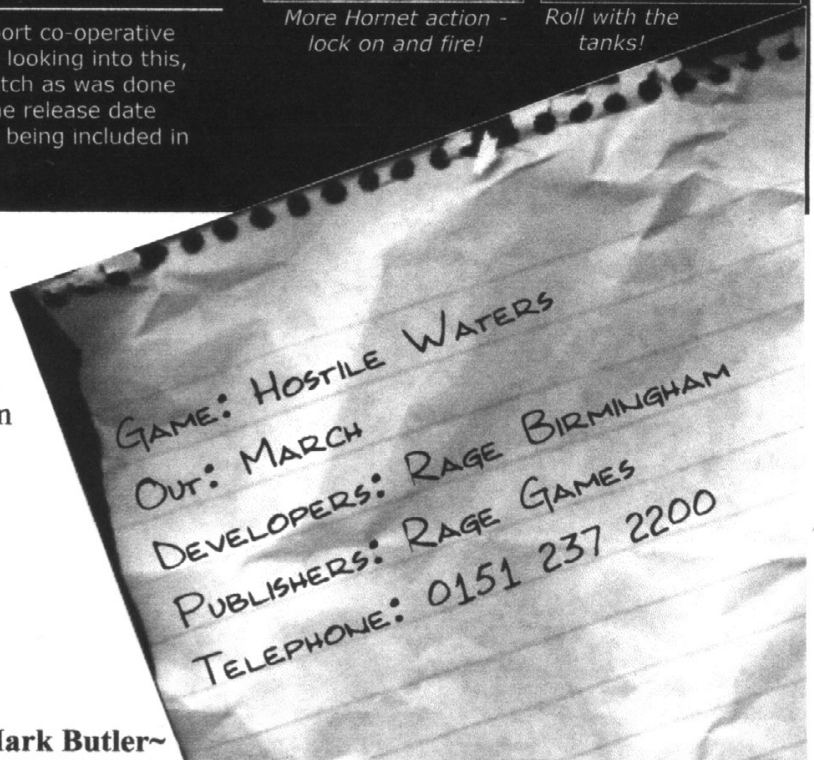 ort co-operative
looking into this,
tch as was done
e release date
being included in
More Hornet action -
lock on and fire!
Roll with the
tanks!
n
GAME: HOSTILE WATERS
OUT: MARCH
DEVELOPERS: RAGE BIRMINGHAM
PUBLISHERS: RAGE GAMES
TELEPHONE: 0151 237 2200
ark Butler~